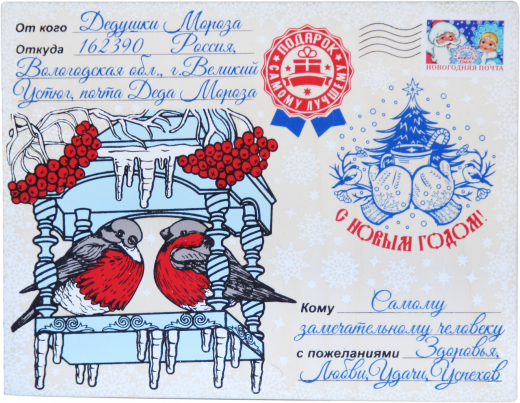 От кого Дедушки Мороза
Откуда 162390 Россия,
Вологодская обл., г.Великий
Устюг, почта Деда Мороза
ПОДАРОК
САМОМУ ЛУЧШЕМУ
НОВОГОДНЯЯ ПОЧТА
С НОВЫМ ГОДОМ!
Кому Самому
замечательному человеку
с пожеланиями Здоровья,
Любви,Удачи,Успехов